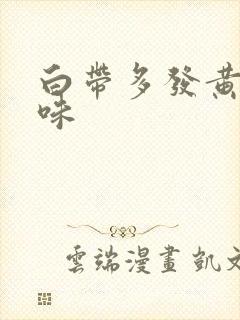 白帶多發黃
味
雲端漫畫 凱文